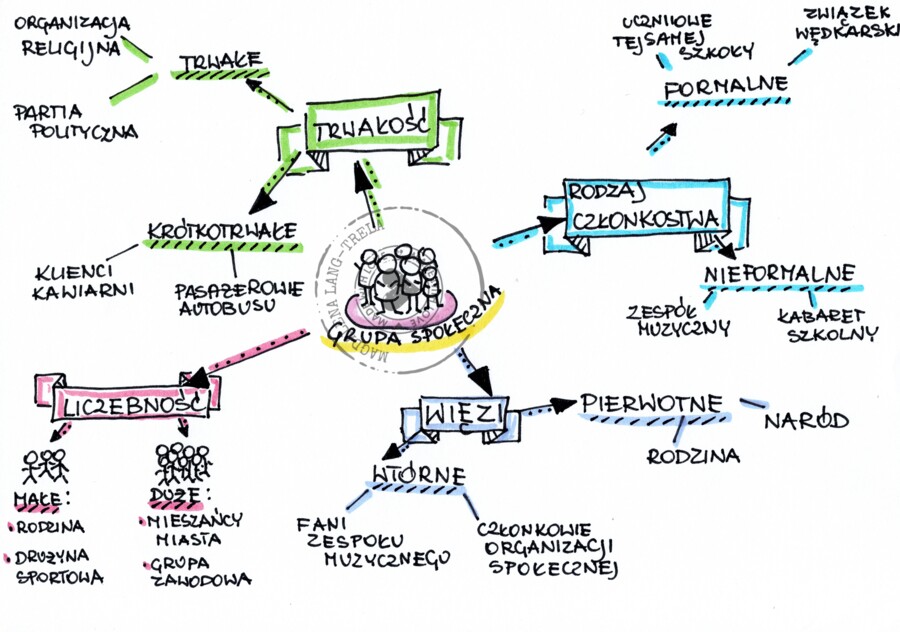 ORGANIZACJA
RELIGIJNA
TRWAŁE
PARTIA
POLITYCZNA
TRWAŁOŚĆ
KRÓTKOTRWAŁE
KLIENCI
KAWIARNI
PASAŻEROWIE
AUTOBUSU
UCZNIOWIE
TEJ SAMEJ
SZKOŁY
ZWIĄZEK
WĘDKARSKI
FORMALNE
RODZAJ
CZŁONKOSTWA
NIEFORMALNE
ZESPÓŁ
MUZYCZNY
KABARET
SZKOLNY
GRUPA SPOŁECZNA
LICZEBNOŚĆ
MAŁE:
RODZINA
DRUŻYNA
SPORTOWA
DUŻE:
MIESZAŃCY
MIASTA
GRUPA
ZAWODOWA
WIĘZI
PIERWOTNE
NARÓD
RODZINA
WTÓRNE
FANI
ZESPOŁU
MUZYCZNEGO
CZŁONKOWIE
ORGANIZACJI
SPOŁECZNEJ